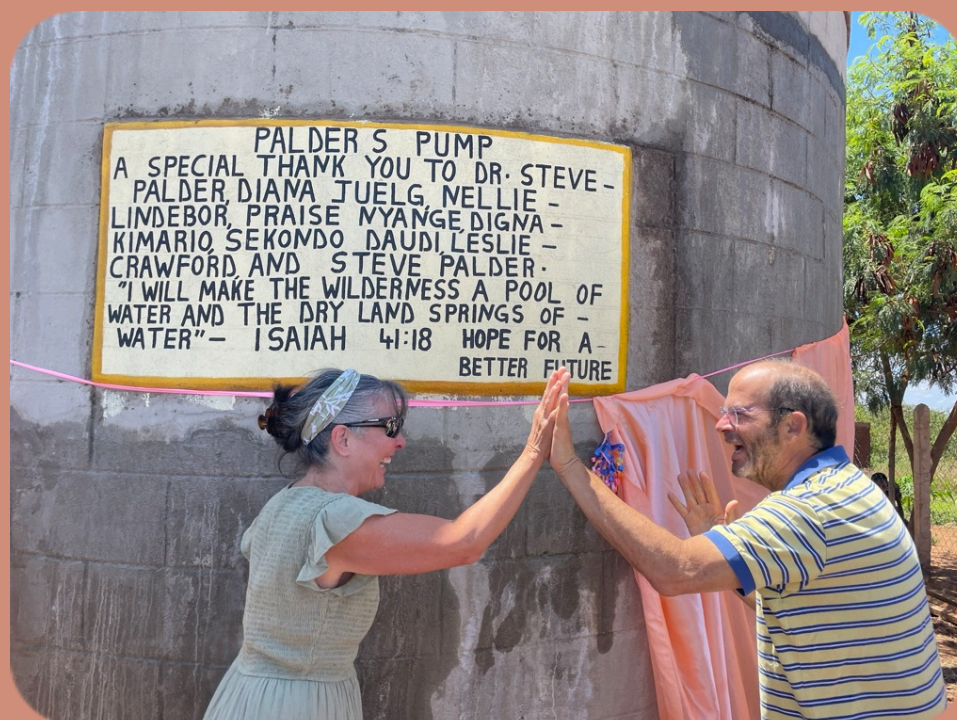 PALDER S PUMP
A SPECIAL THANK YOU TO DR. STEVE-
PALDER, DIANA JUELG, NELLIE -
LINDEBOR, PRAISE NYANGE, DIGNA -
KIMARIO, SEKONDO DAUDI, LESLIE -
CRAWFORD, AND STEVE PALDER.
"I WILL MAKE THE WILDERNESS A POOL OF
WATER AND THE DRY LAND SPRINGS OF -
WATER" - ISAIAH 41:18 HOPE FOR A -
BETTER FUTURE